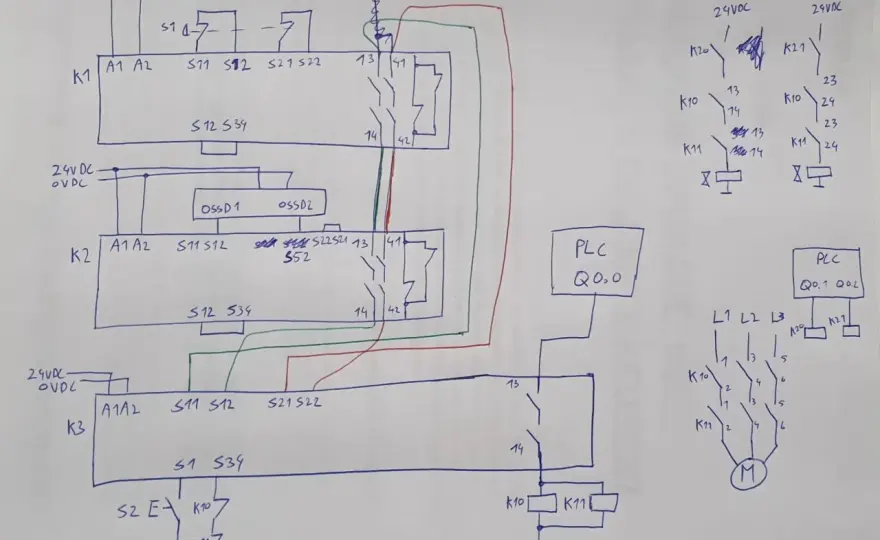 24VDC 24VDC
S1
K20 K21
K1 A1 A2 S11 S12 S21 S22 13 41
13 23
K10 14 K10 24
S12 S34 14 42
13 23
K11 14 K11 24
24VDC
0VDC
OSSD1 OSSD2
K2 A1 A2 S11 S12 S22 S21 13 41
S52
PLC
Q0.0
PLC
Q0.1 Q0.2
S12 S34 14 42
K20 K21
L1 L2 L3
24VDC
0VDC
1 3 5
K10 2 4 6
13
A1 A2 S11 S12 S21 S22
K3
1 3 5
K11 2 4 6
14
S1 S34
M
S2 E K10
K10 K11